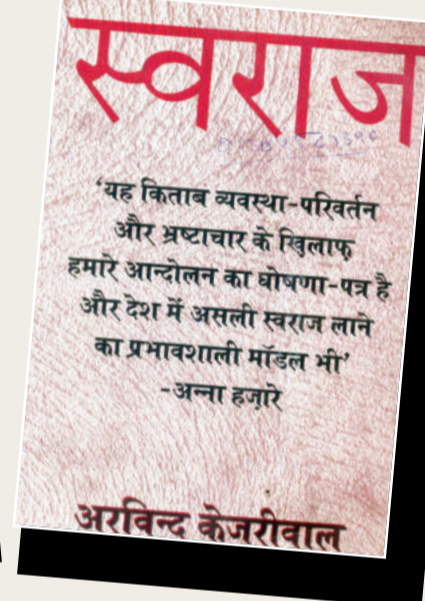 स्वराज
‘यह किताब व्यवस्था-परिवर्तन
और भ्रष्टाचार के खिलाफ़
हमारे आन्दोलन का घोषणा-पत्र है
और देश में असली स्वराज लाने
का प्रभावशाली मॉडल भी’
-अन्ना हज़ारे
अरविन्द केजरीवाल